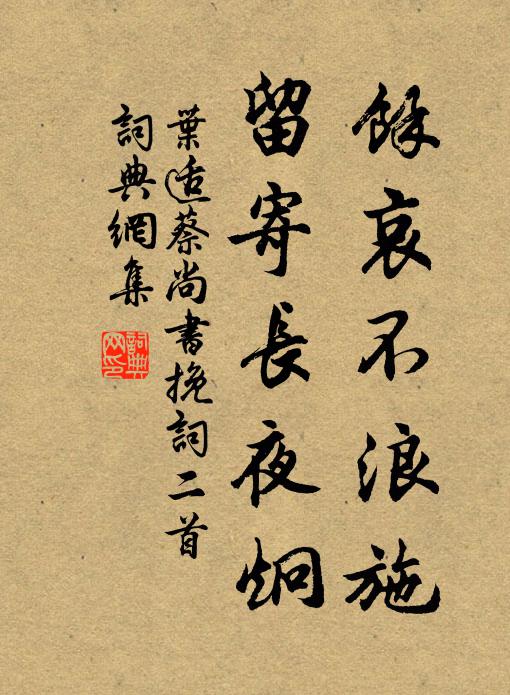 餘哀不浪施
留寄長夜炯
葉适蔡尚書挽詞二首
詞典網集
詞典網印